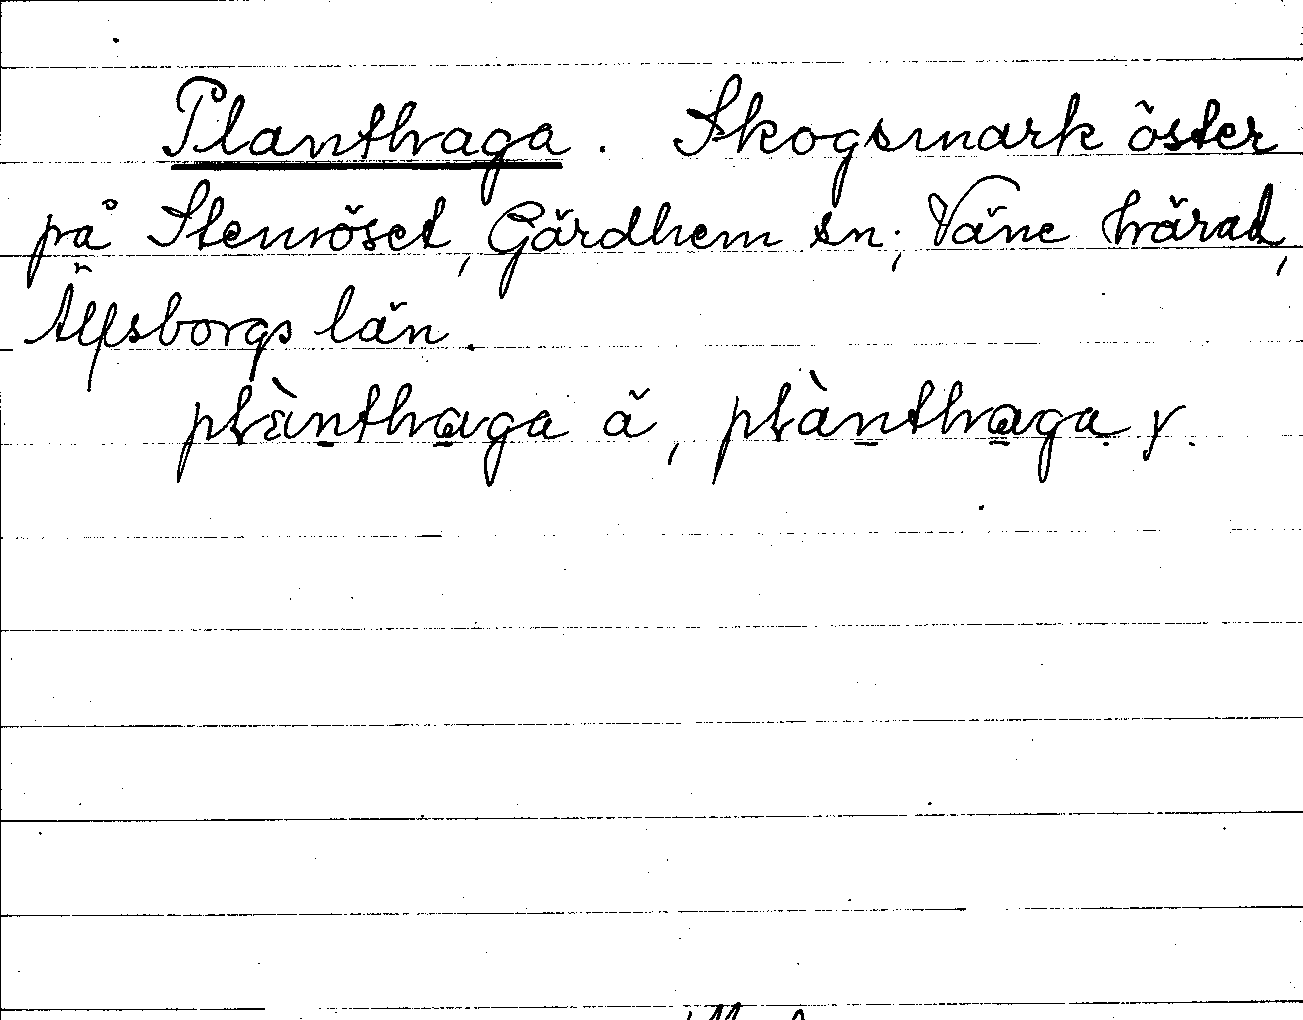 Planthaga. Skogsmark öster
på Stenröset, Gärdhem sn; Väne härad,
Älfsborgs län.
plànthaga ä, plànthaga y.